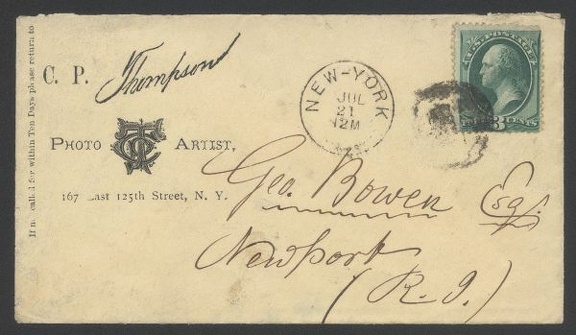 If not called for within Ten Days please return to
C. P. Thompson
PHOTO TC ARTIST,
167 East 125th Street, N. Y.
NEW-YORK
JUL
21
12M
U.S. POSTAGE
3 CENTS
Geo. Bowen Esq.
Newport
(R. I.)